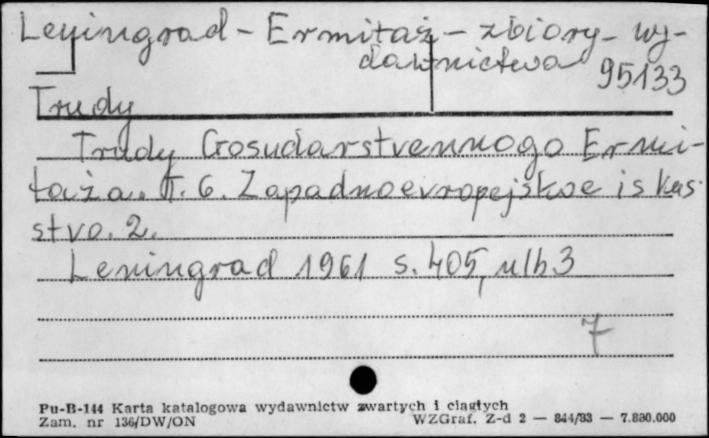 Leningrad - Ermitaż - zbiory - wy-
dawnictwa
95133
Trudy
Trudy Gosudarstvennogo Ermi-
taża. T. 6. Zapadnoevropejskoe iskus-
stvo. 2.
Leningrad 1961 s. 405,
7
Pu-B-144 Karta katalogowa wydawnictw zwartych i ciągłych
Zam. nr 136/DW/ON WZGraf. Z-d 2 — 844/83 — 7.830.000